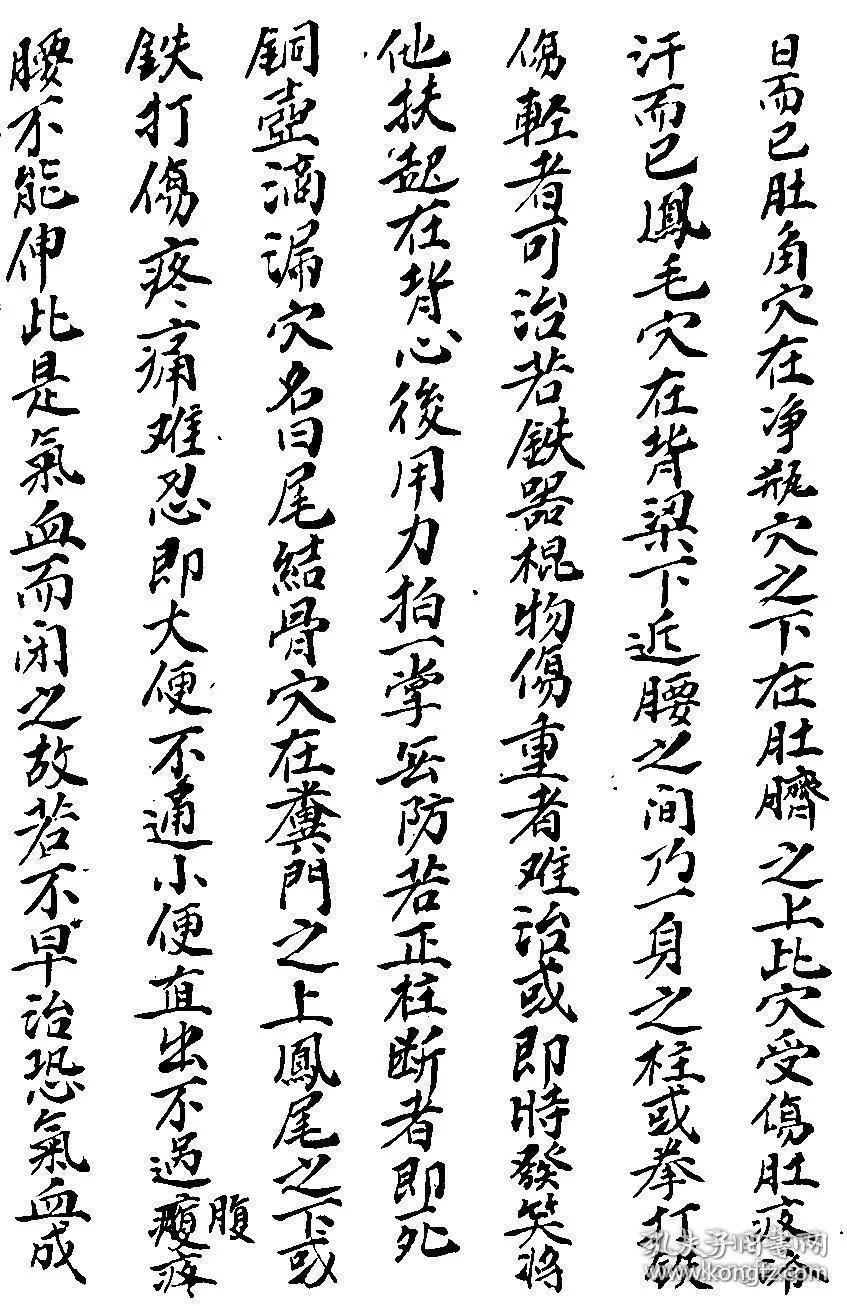 日而已肚角穴在净瓶穴之下在肚臍之上此穴受傷肚疼沛
汗而已鳳毛穴在背梁下近腰之间乃一身之柱或拳打铁
傷輕者可治若鉄器棍物傷重者难治或即時發笑将
他扶起在背心後用力拍一掌无防若正柱断者即死
銅壺滴漏穴名曰尾結骨穴在糞門之上鳳尾之下或
鉄打傷疼痛难忍即大便不通小便直出不過疼
腹
腰不能伸此是氣血而闭之故若不早治恐氣血成
孔夫子旧书网
www.kongfz.com